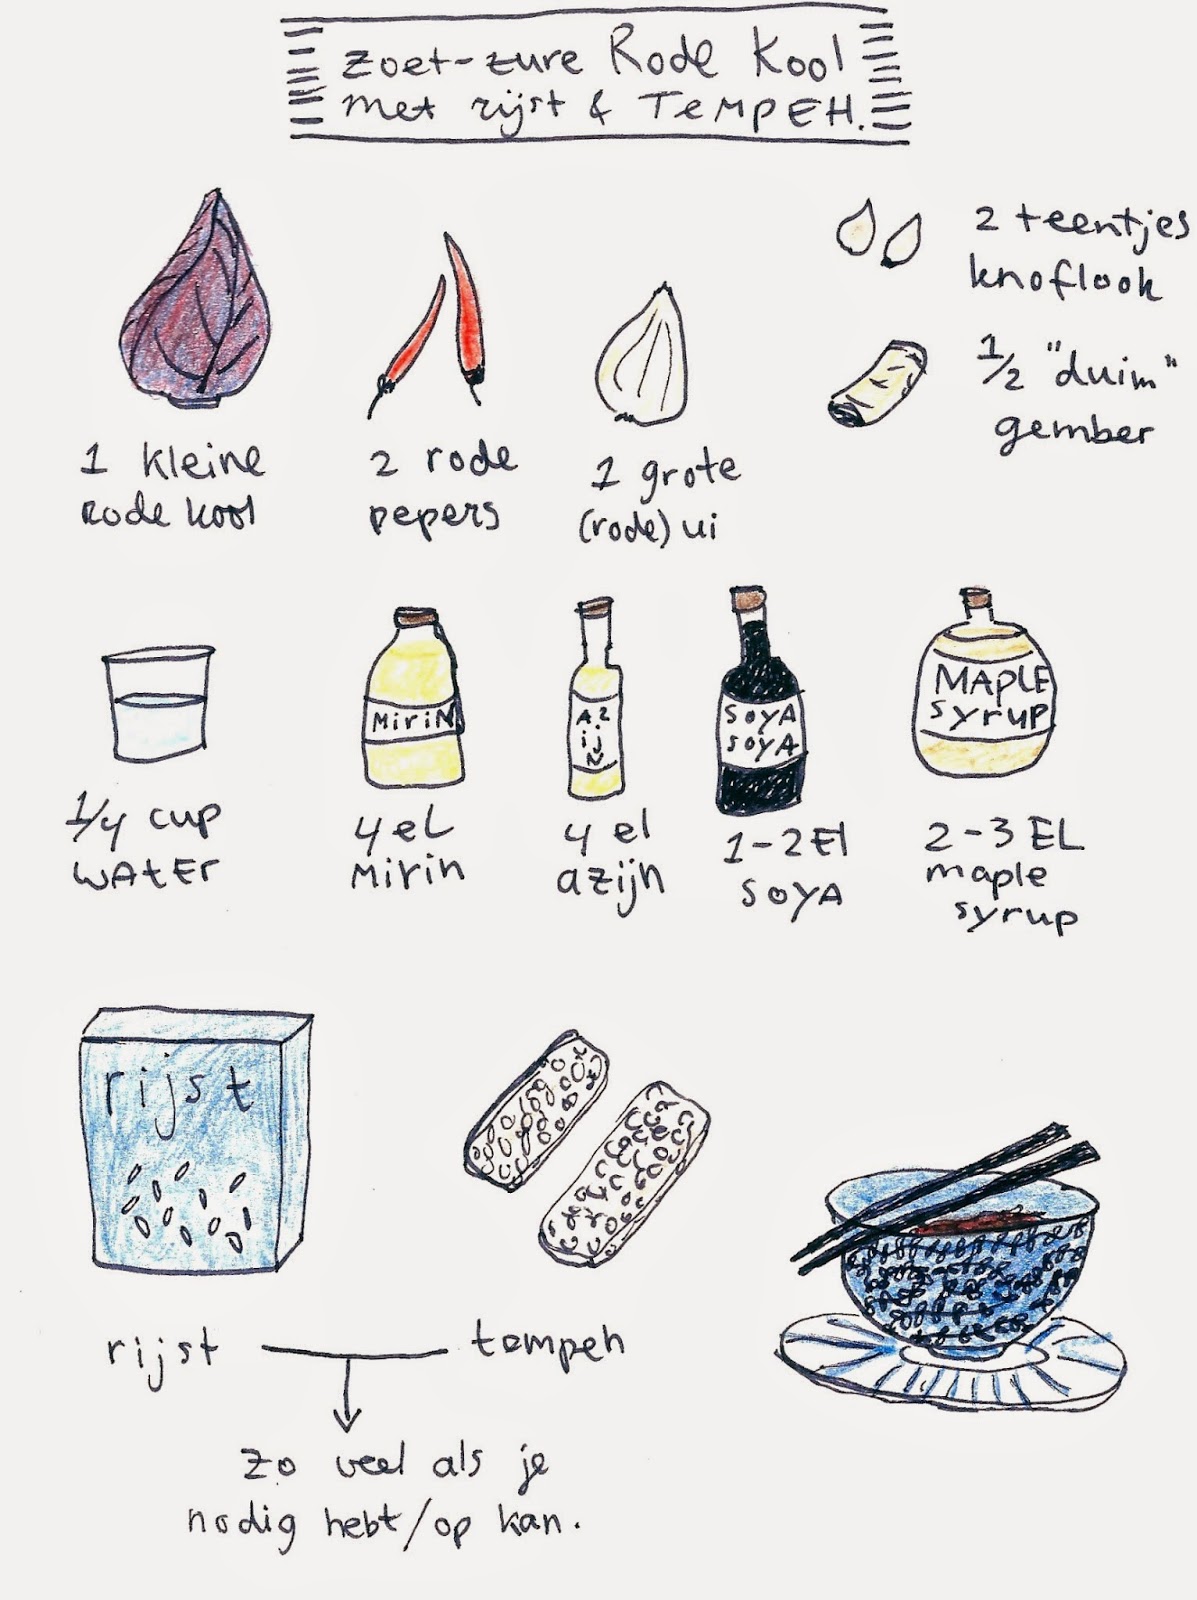 Zoet-zure Rode Kool
met rijst & TEMPEH.
2 teentjes
knoflook
1/2 "duim"
gember
1 kleine
Rode kool
2 rode
pepers
1 grote
(rode) ui
MiriN
AZ
ij
N
SOYA
SOYA
MAPLE
syrup
1/4 cup
WAtEr
4 eL
Mirin
4 el
azijn
1-2El
SOYA
2-3 EL
maple
syrup
rijst
rijst
tempeh
Zo veel als je
nodig hebt/op kan.